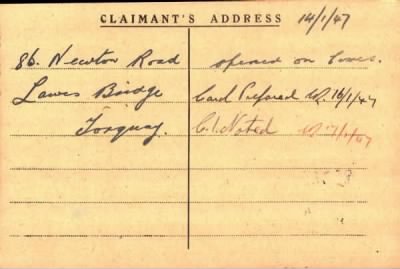 CLAIMANT'S ADDRESS 14/1/47
86. Newton Road
Lawes Bridge
Torquay.
opened on
Card Prepared 16/1/47
C.I. Noted 17/1/47